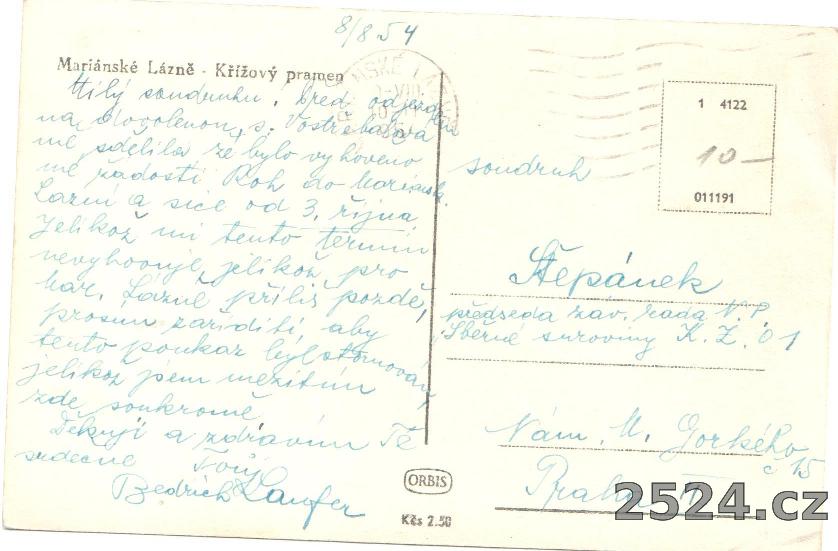 8/8 54
Mariánské Lázně - Křížový pramen
Milý soudruhu, před odjezdem
na dovolenou s. Vostřebalova
mě sdělila že bylo vyhoveno
mé žádosti Roh do Mariánsk.
Lázní a sice od 3. října
Jelikož mi tento termín
nevyhovuje, jelikož pro
Mar. Lázně příliš pozdě,
prosím zaříditi, aby
tento poukaz byl stornován,
jelikož jsem mezitím
zde soukromě
Děkuji a zdravím Tě
srdečně Tvůj
Bedrich Laufer
1 4122
10-
011191
soudruh
Štěpánek
předseda záv. rada N. P.
Sběrné suroviny K. Z. O 1
Nám. M. Gorkého
č 15
Praha II
ORBIS
Kčs 2.50
2524.cz